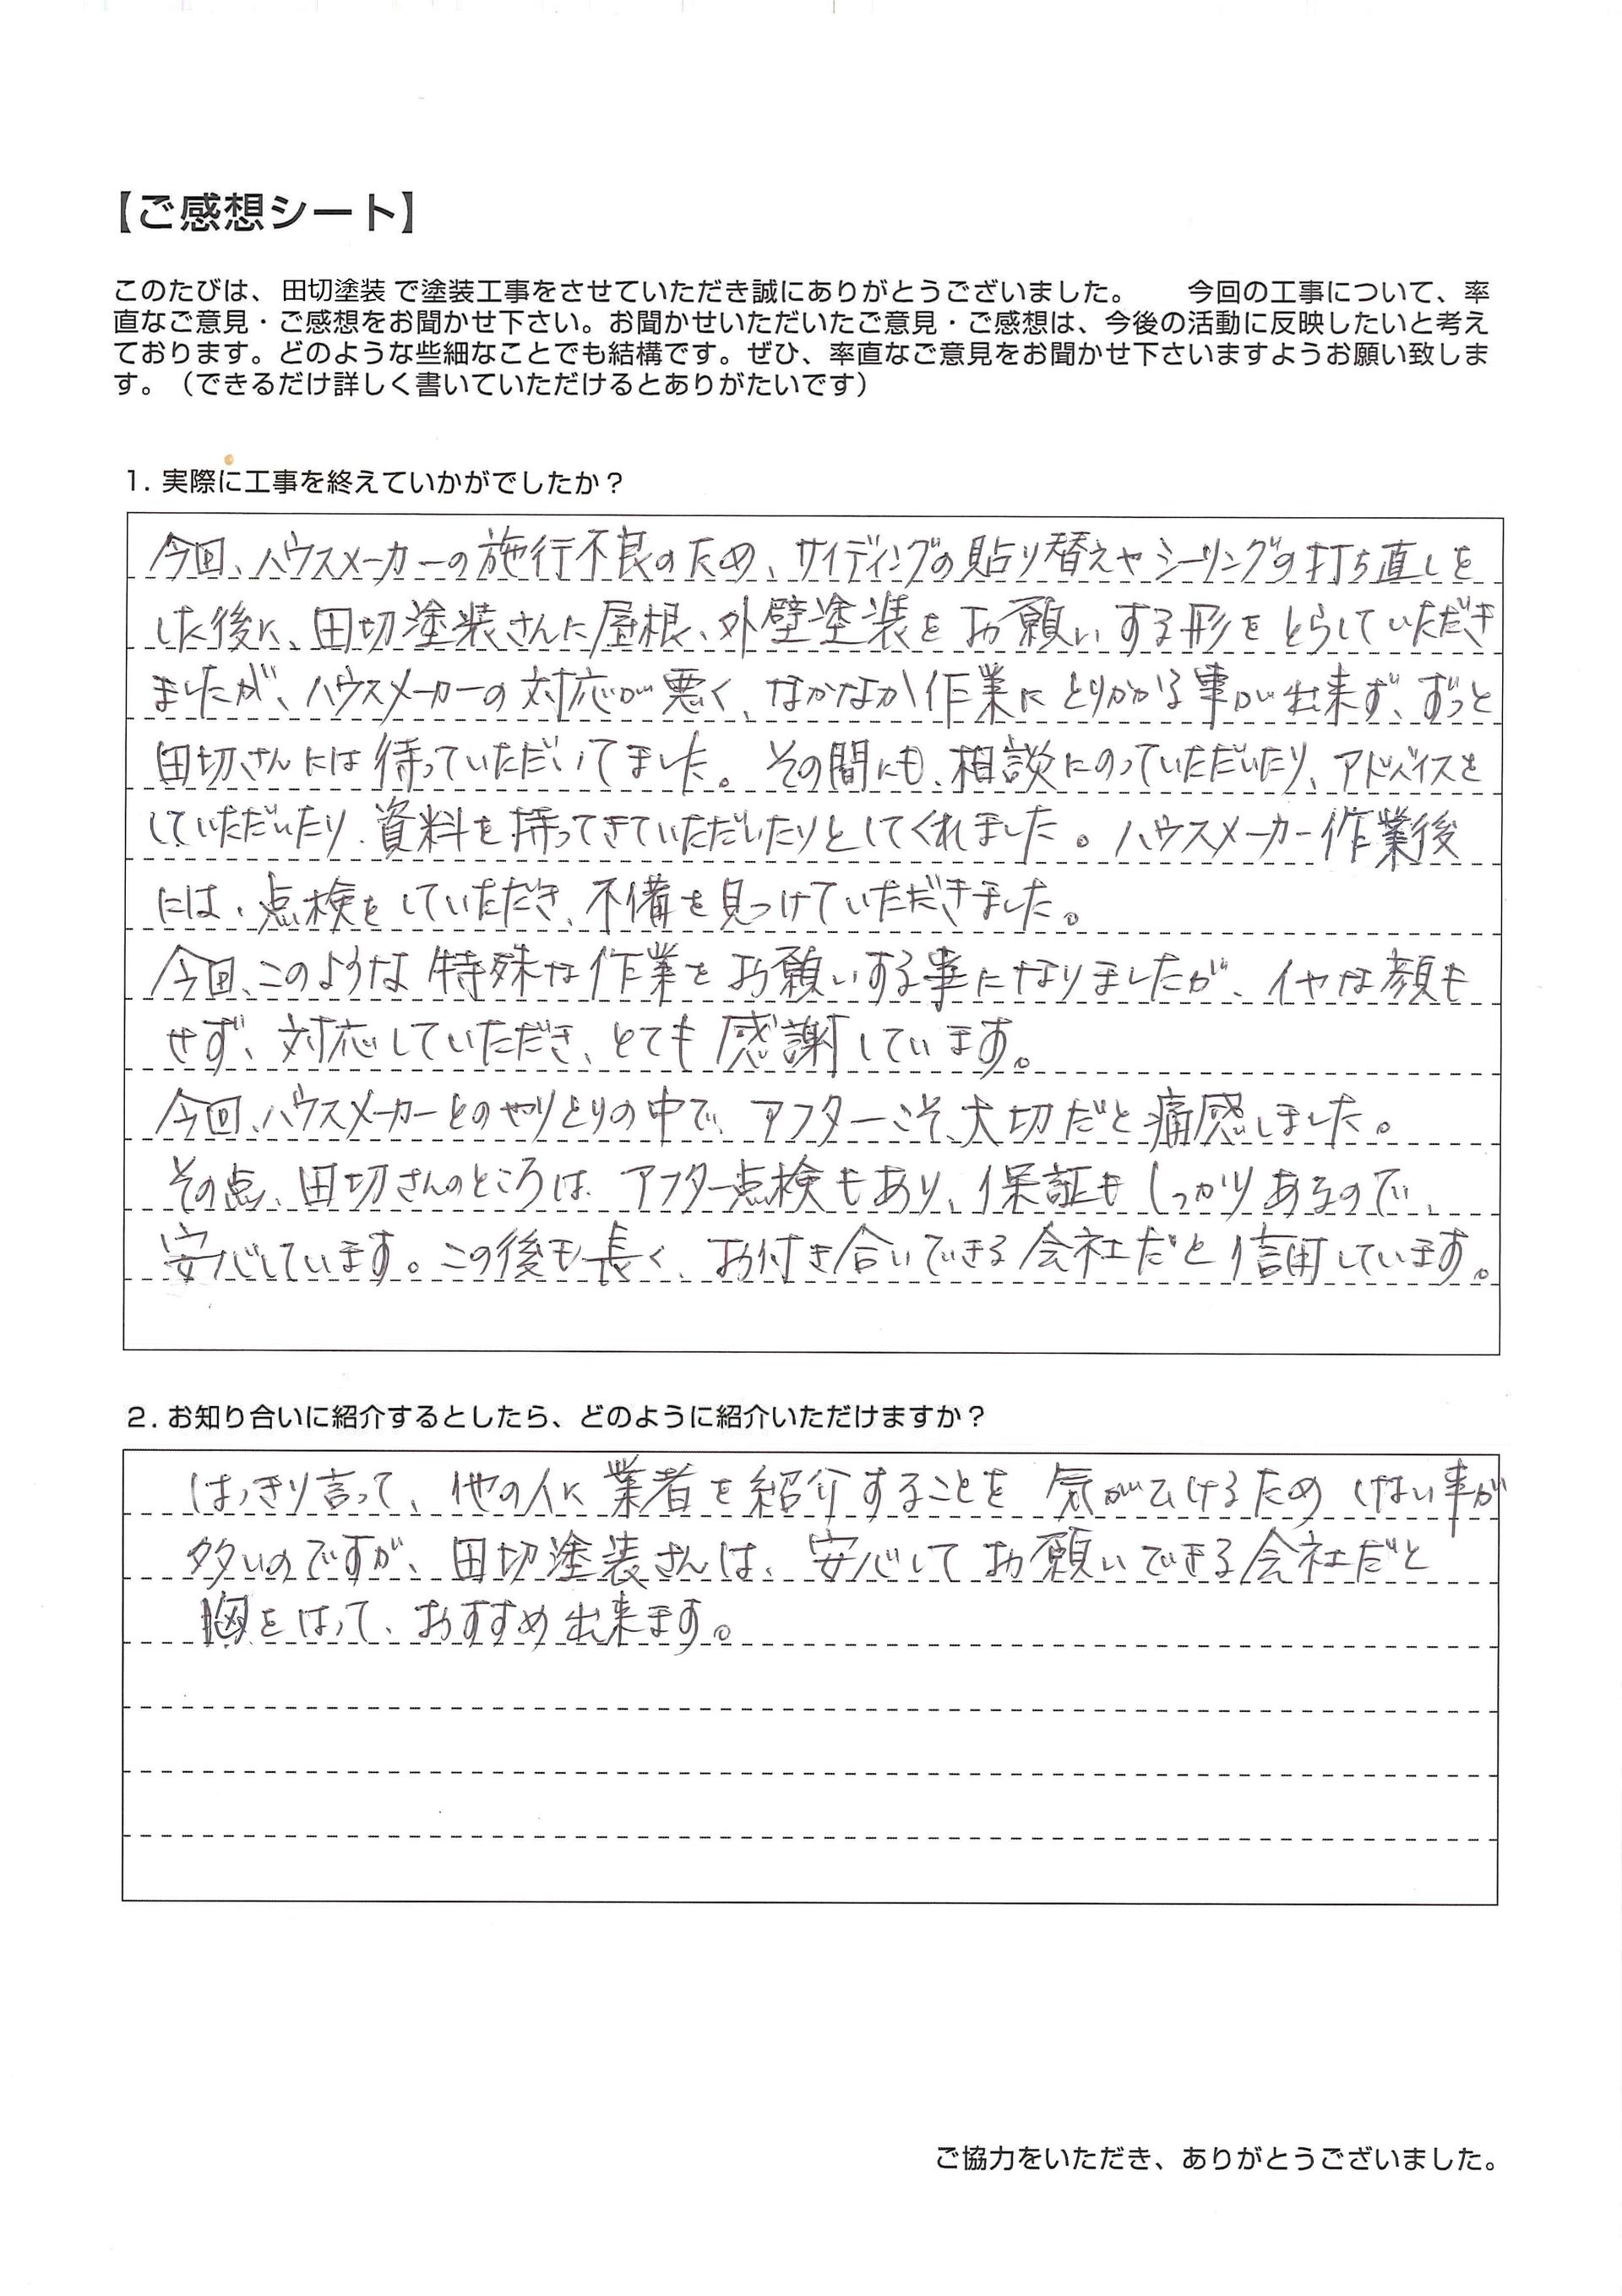 【ご感想シート】
このたびは、田切塗装で塗装工事をさせていただき誠にありがとうございました。　　今回の工事について、率
直なご意見・ご感想をお聞かせ下さい。お聞かせいただいたご意見・ご感想は、今後の活動に反映したいと考え
ております。どのような些細なことでも結構です。ぜひ、率直なご意見をお聞かせ下さいますようお願い致しま
す。（できるだけ詳しく書いていただけるとありがたいです）
1. 実際に工事を終えていかがでしたか？
今回、ハウスメーカーの施行不良のため、サイディングの貼り替えやシーリングの打ち直しを
した後に、田切塗装さんに屋根、外壁塗装をお願いする形をとらしていただき
ましたが、ハウスメーカーの対応が悪く、なかなか作業にとりかかる事が出来ず、ずっと
田切さんには待っていただいてました。その間にも、相談にのっていただいたり、アドバイスを
していただいたり、資料を持ってきていただいたりとしてくれました。ハウスメーカー作業後
には、点検をしていただき、不備を見つけていただきました。
今回、このような特殊な作業をお願いする事になりましたが、イヤな顔も
せず、対応していただき、とても感謝しています。
今回、ハウスメーカーとのやりとりの中で、アフターこそ、大切だと痛感しました。
その点、田切さんのところは、アフター点検もあり、保証もしっかりあるので、
安心しています。この後も長く、お付き合いできる会社だと信用しています。
2. お知り合いに紹介するとしたら、どのように紹介いただけますか？
はっきり言って、他の人に業者を紹介することを気がひけるためしない事が
多いのですが、田切塗装さんは、安心してお願いできる会社だと
胸をはって、おすすめ出来ます。
ご協力をいただき、ありがとうございました。